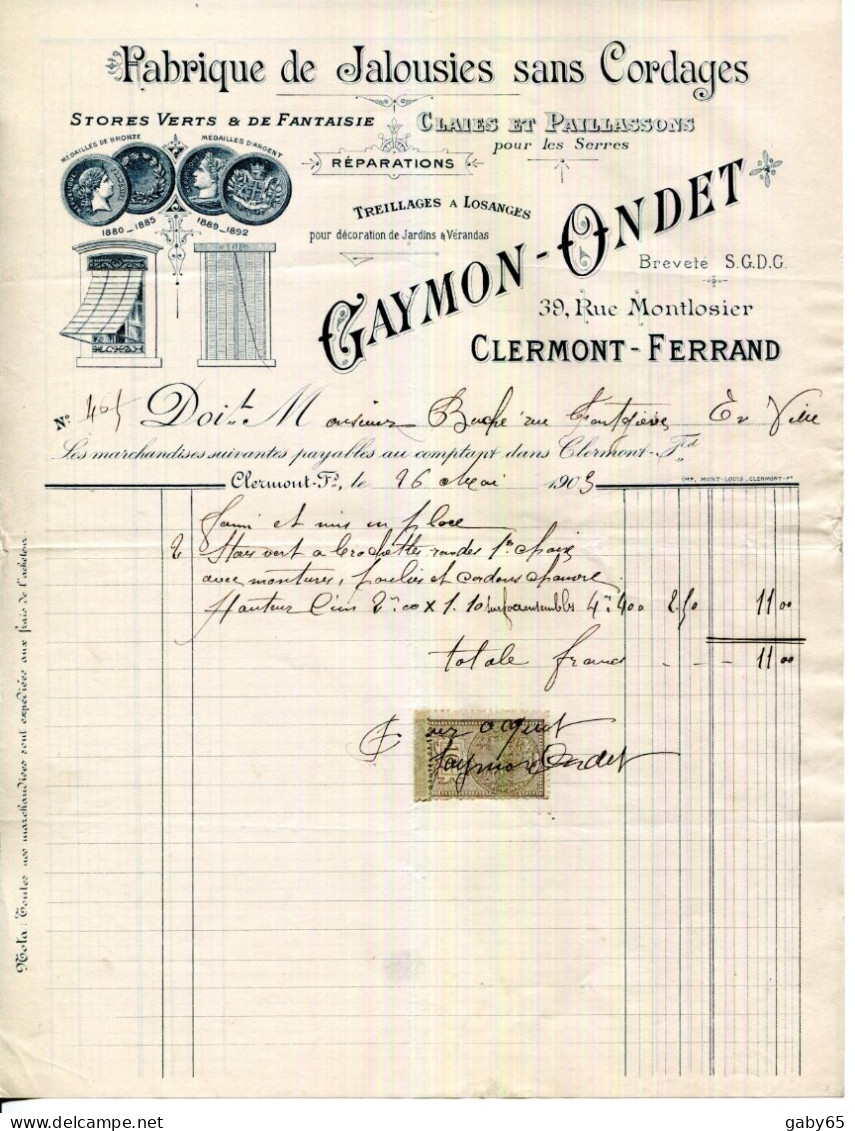 Fabrique de Jalousies sans Cordages
STORES VERTS & DE FANTAISIE
CLAIES ET PAILLASSONS
pour les Serres
MÉDAILLES DE BRONZE
MÉDAILLES D'ARGENT
RÉPARATIONS
1880_1885
1889_1892
TREILLAGES A LOSANGES
pour décoration de Jardins & Vérandas
GAYMON-ONDET
Breveté S.G.D.G.
39, Rue Montlosier
CLERMONT-FERRAND
N° 465 Doit M Monsieur rue Fontgiève En Ville
Les marchandises suivantes payables au comptant dans Clermont-Fd
Clermont-Fd, le 26 Mai 1903
IMP. MONT-LOUIS, CLERMONT-Fd
et mis en place
2 vert a crochettes rondes 1er
avec montures, poulies et cordons chanvre
Hauteur 2m00 x 1.10 4m400 2.50 11 00
totale francs - - - 11 00
Pour acquit
Gaymon Ondet
Nota: Toutes nos marchandises sont expédiées aux frais de l'acheteur.
gaby65